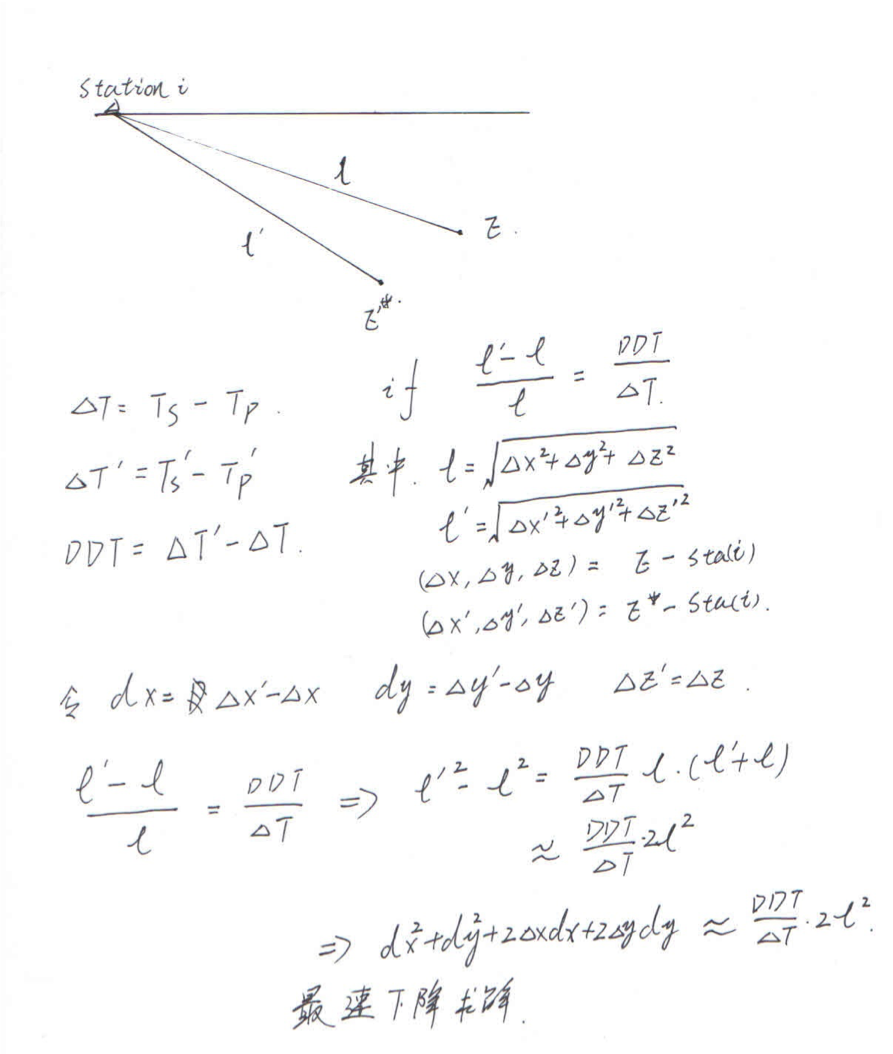 Station i
l
l'
Z.
Z'*.
ΔT = Ts - Tp. if (l' - l)/l = DDT/ΔT.
ΔT' = Ts' - Tp' 其中. l = √(Δx² + Δy² + Δz²)
l' = √(Δx'² + Δy'² + Δz'²)
DDT = ΔT' - ΔT.
(Δx, Δy, Δz) = Z - sta(i)
(Δx', Δy', Δz') = Z* - Sta(i).
令 dx = Δx' - Δx dy = Δy' - Δy Δz' = Δz.
(l' - l)/l = DDT/ΔT ⇒ l'² - l² = DDT/ΔT l·(l' + l)
≈ DDT/ΔT·2l²
⇒ dx² + dy² + 2Δxdx + 2Δydy ≈ DDT/ΔT·2l².
最速下降求解.